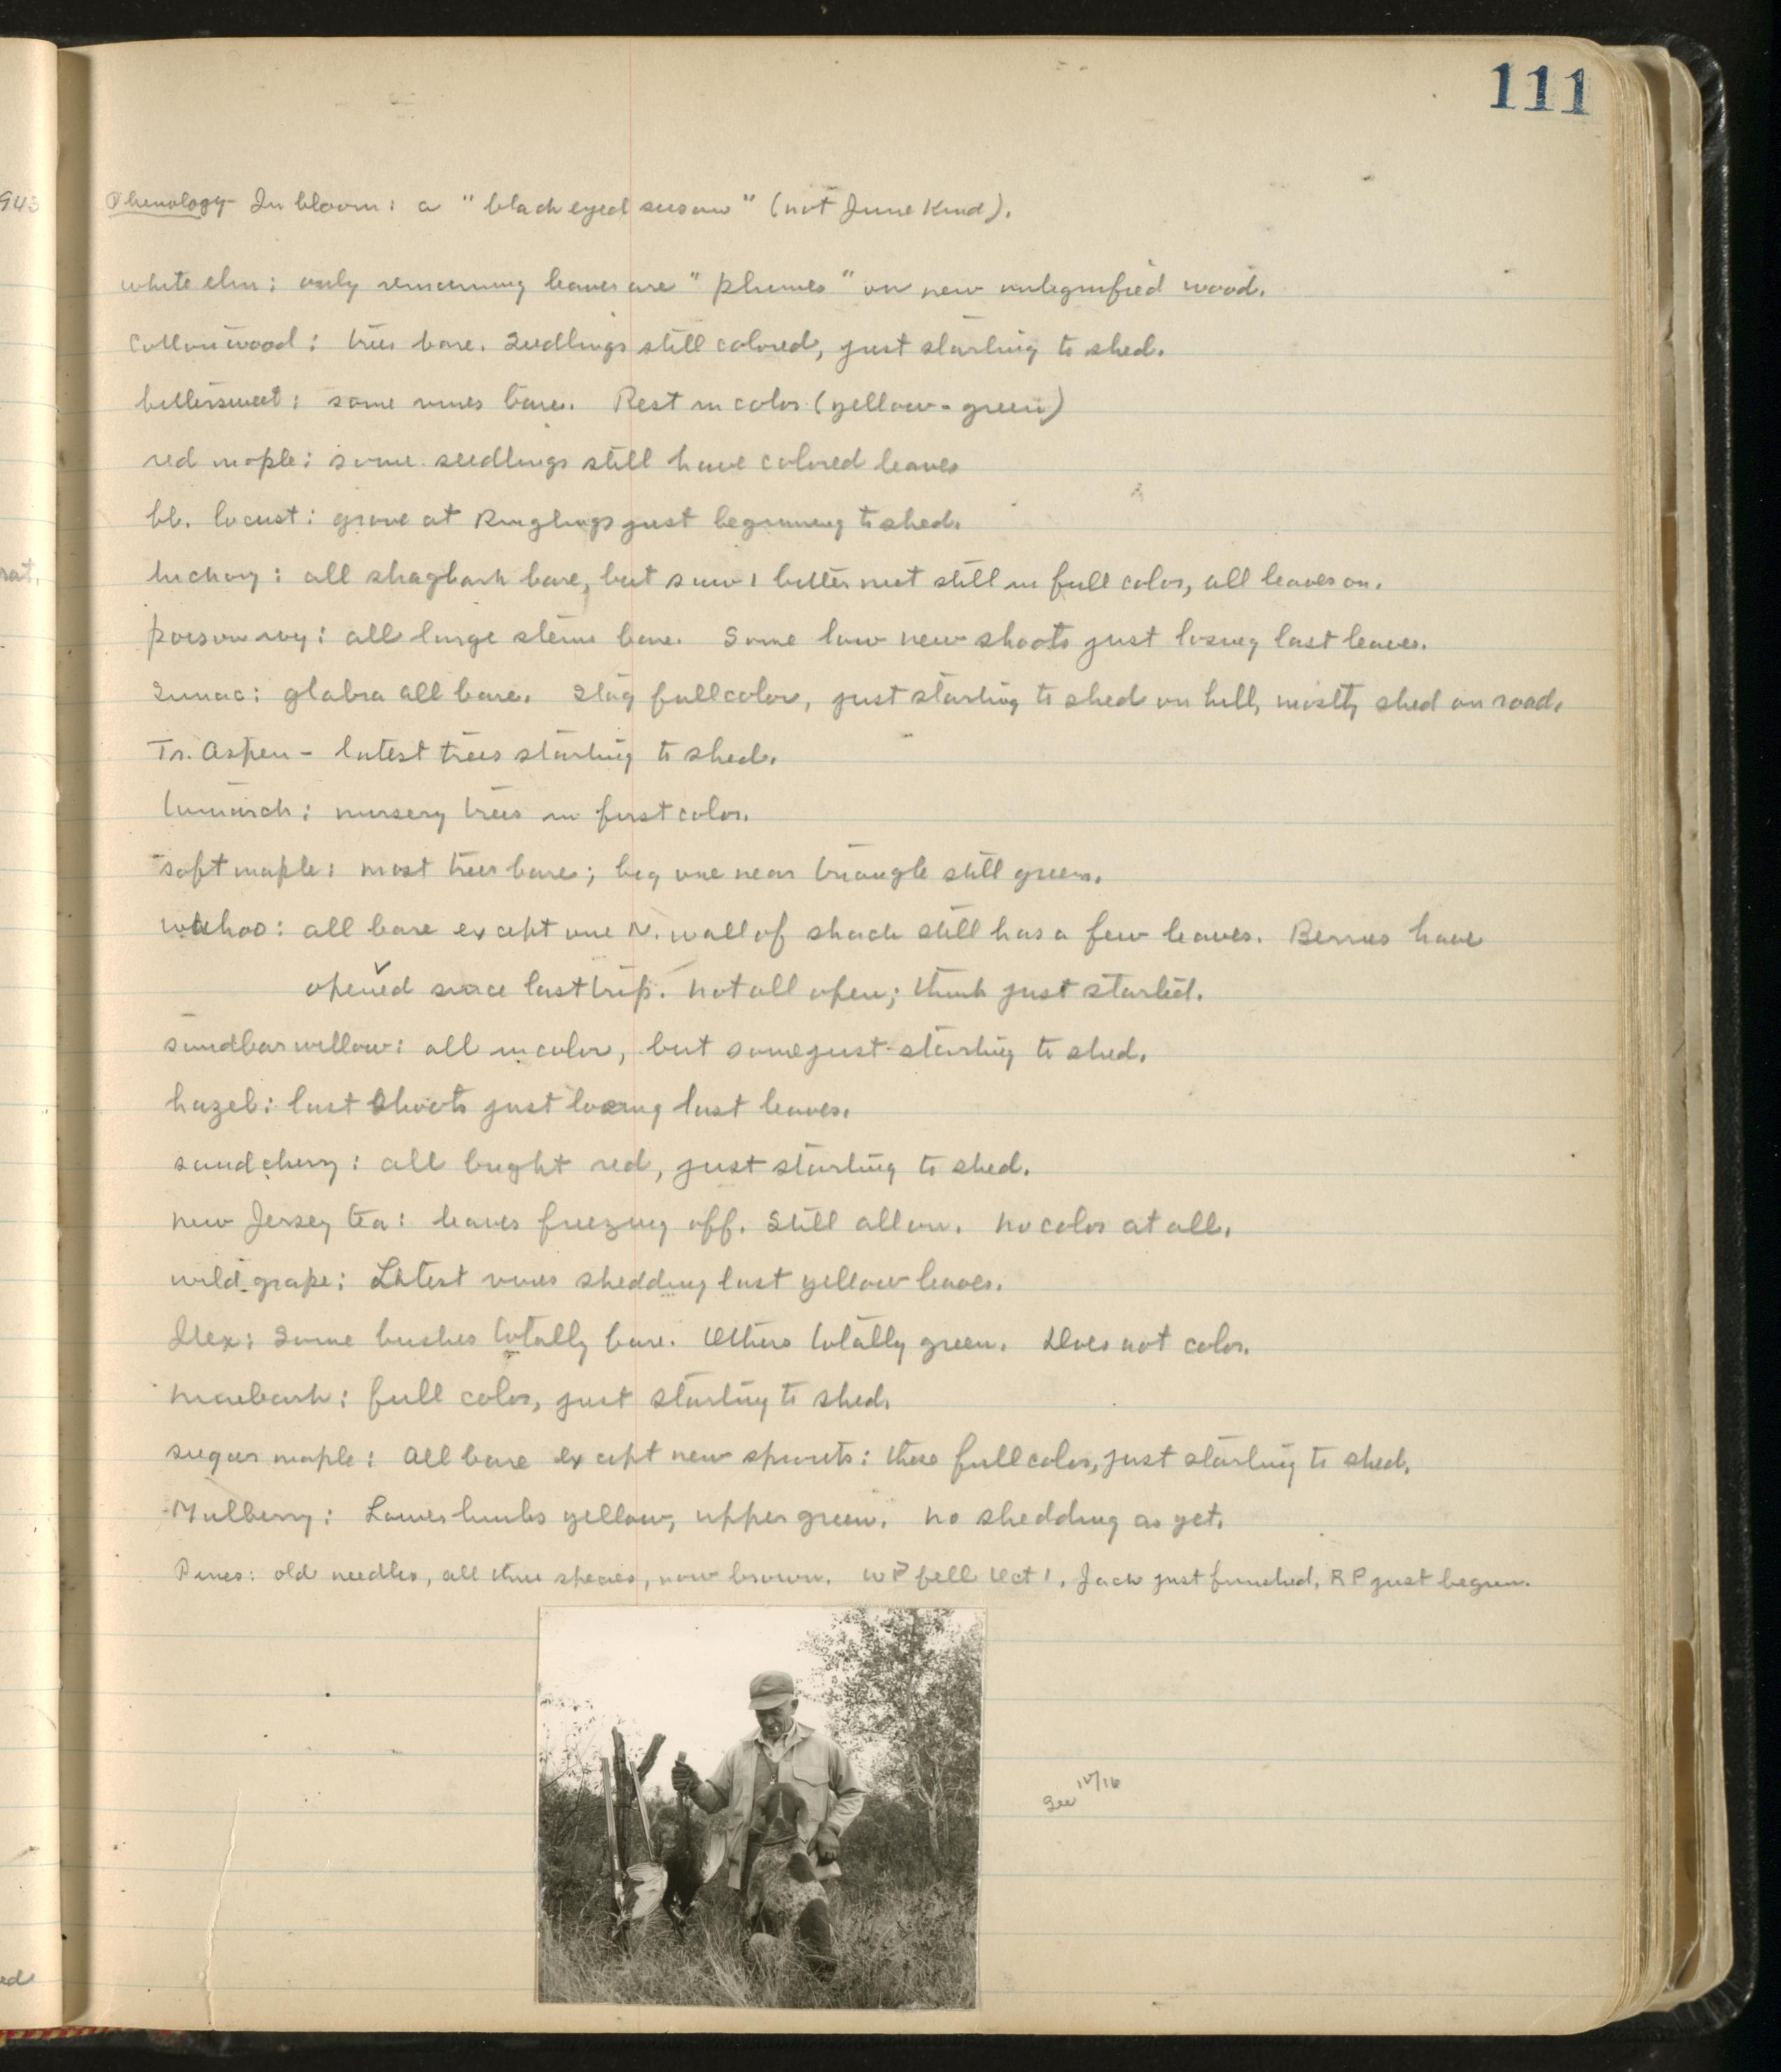 111
943
Phenology In bloom: a "black eyed susan" (not June kind).
white elm: only remaining leaves are "plumes" on new unlignified wood.
Cottonwood: trees bare. Seedlings still colored, just starting to shed.
bittersweet: some vines bare. Rest in color (yellow-green)
red maple: some seedlings still have colored leaves
bl. locust: grove at Ringlings just beginning to shed.
hickory: all shagbark bare, but saw 1 bitternut still in full color, all leaves on.
poison ivy: all large stems bare. Some low new shoots just losing last leaves.
Sumac: glabra all bare. Stag full color, just starting to shed on hill, mostly shed on road.
Tr. Aspen - latest trees starting to shed.
tamarack: nursery trees in first color.
soft maple: most trees bare; big one near triangle still green.
wahoo: all bare except one N. wall of shack still has a few leaves. Berries have
opened since last trip. Not all open; think just started.
sandbar willow: all in color, but some just starting to shed.
hazel: last shoots just losing last leaves.
sand cherry: all bright red, just starting to shed.
New Jersey tea: leaves freezing off. Still all on. No color at all.
wild grape: Latest vines shedding last yellow leaves.
Ilex: Some bushes totally bare. Others totally green. Does not color.
Ninebark: full color, just starting to shed.
sugar maple: All bare except new sprouts: these full color, just starting to shed.
Mulberry: Lower limbs yellow, upper green. No shedding as yet.
Pines: old needles, all three species, now brown. WP fell Oct 1, Jack just finished, RP just begun.
See 10/16